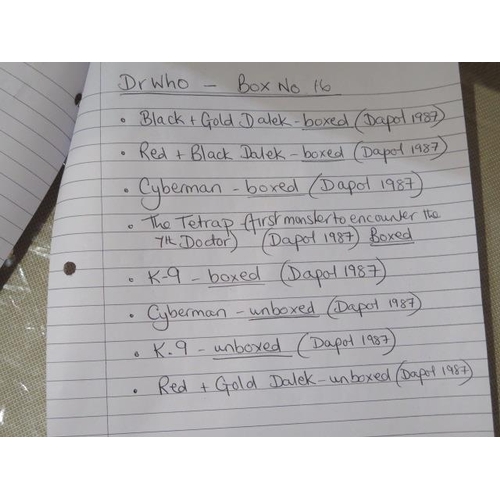 Dr Who - Box No 16
• Black + Gold Dalek - boxed (Dapol 1987)
• Red + Black Dalek - boxed (Dapol 1987)
• Cyberman - boxed (Dapol 1987)
• The Tetrap (first monster to encounter the
7th Doctor) (Dapol 1987) Boxed
• K-9 - boxed (Dapol 1987)
• Cyberman - unboxed (Dapol 1987)
• K.9 - unboxed (Dapol 1987)
• Red + Gold Dalek - unboxed (Dapol 1987)